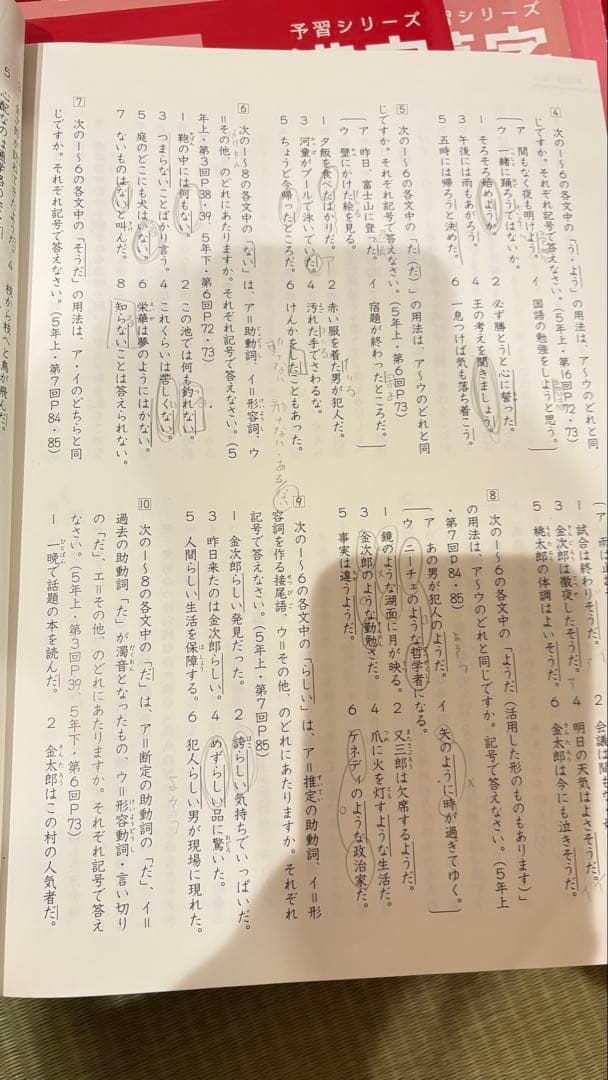 予習シリーズ
習シリーズ
漢字
4 次の1〜6の各文中の「う・よう」の用法は、ア〜ウのどれと同
じですか。それぞれ記号で答えなさい。(5年上・第16回P72・73)
ア 間もなく夜も明けよう。 イ 国語の勉強をしようと思う。
ウ 一緒に踊ろうではないか。
1 そろそろ始めようか。 2 必ず勝とうと心に誓った。
3 午後には雨もあがろう。 4 王の考えを聞きましょう。
5 五時には帰ろうと決めた。 6 一息つけば気も落ち着こう。
5 次の1〜6の各文中の「た(だ)」の用法は、ア〜ウのどれと同
じですか。それぞれ記号で答えなさい。(5年上・第6回P73)
ア 昨日、富士山に登った。 イ 宿題が終わったところだ。
ウ 壁にかけた絵を見る。
1 夕飯を食べたばかりだ。 2 赤い服を着た男が犯人だ。
3 河童がプールで泳いでいた。 4 汚れた手でさわるな。
5 ちょうど今帰ったところだ。 6 けんかをしたこともあった。
6 次の1〜8の各文中の「ない」は、ア=助動詞、イ=形容詞、ウ
=その他、のどれにあたりますか。それぞれ記号で答えなさい。(5
年上・第3回P38・39、5年下・第6回P72・73)
1 鞄の中には何もない。 2 この池では何も釣れない。
3 つまらないことばかり言う。 4 これくらいは苦しくない。
5 庭のどこにも犬はいない。 6 栄華は夢のようにはかない。
7 ないものはないと叫んだ。 8 知らないことは答えられない。
7 次の1〜6の各文中の「そうだ」の用法は、ア・イのどちらと同
じですか。それぞれ記号で答えなさい。(5年上・第7回P84・85)
1 試合は終わりそうだ。 2
3 金次郎は徹夜したそうだ。 4 明日の天気はよさそうだ。
5 桃太郎の体調はよいそうだ。 6 金太郎は今にも泣きそうだ。
8 次の1〜6の各文中の「ようだ(活用した形のものもあります)」
の用法は、ア〜ウのどれと同じですか。記号で答えなさい。(5年上
・第7回P84・85)
ア あの男が犯人のようだ。 イ 矢のように時が過ぎてゆく。
ウ ニーチェのような哲学者になる。
1 鏡のような湖面に月が映る。 2 又三郎は欠席するようだ。
3 金次郎のような勤勉さだ。 4 爪に火を灯すような生活だ。
5 事実は違うようだ。 6 ケネディのような政治家だ。
9 次の1〜6の各文中の「らしい」は、ア=推定の助動詞、イ=形
容詞を作る接尾語、ウ=その他、のどれにあたりますか。それぞれ
記号で答えなさい。(5年上・第7回P85)
1 金次郎らしい発見だった。 2 誇らしい気持ちでいっぱいだ。
3 昨日来たのは金次郎らしい。 4 めずらしい品に驚いた。
5 人間らしい生活を保障する。 6 犯人らしい男が現場に現れた。
10 次の1〜8の各文中の「だ」は、ア=断定の助動詞の「だ」、イ=
過去の助動詞「た」が濁音となったもの、ウ=形容動詞・言い切り
の「だ」、エ=その他、のどれにあたりますか。それぞれ記号で答え
なさい。(5年上・第3回P39、5年下・第6回P73)
1 一晩で話題の本を読んだ。 2 金太郎はこの村の人気者だ。
4 枝から枝へと鳥が飛んだ。